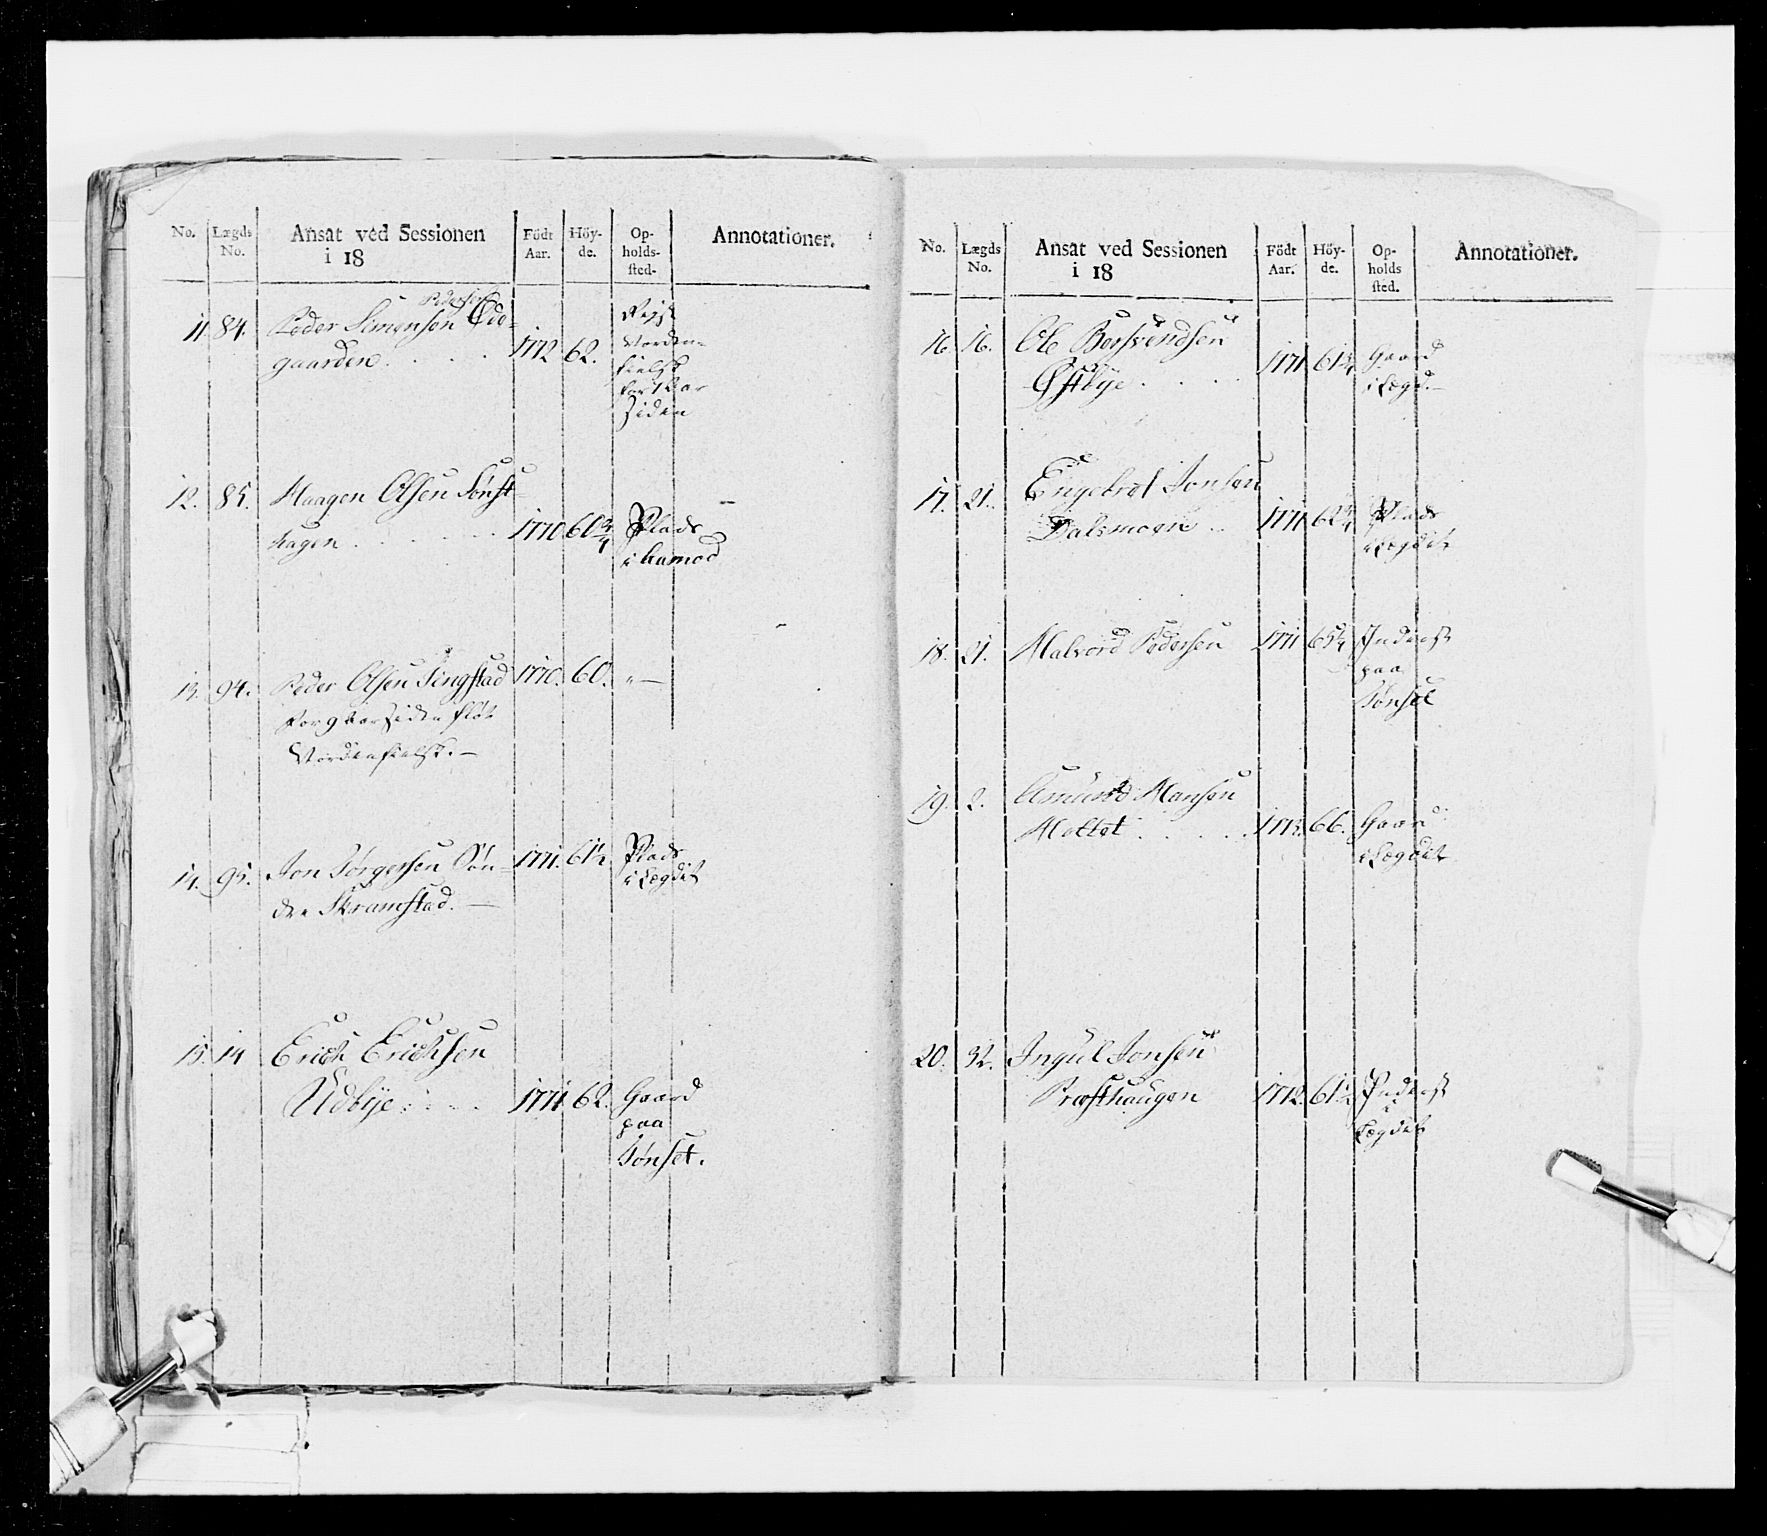 No. Lægds No. Ansat ved Sessionen i 18 Födt Aar. Höy-de. Op-holds-sted- Annotationer.
Pedersen
11. 84. Peder Simensen Ode-
gaarden . . . . 1772 62.
Norden-
fielsk
Siden
12. 85. Haagen Olsen Sønst-
hagen . . . . . . 1770 60 3/4 Plads
i Aamod
13. 94. Peder Olsen Singstad 1770. 60. "—
Nordenfielsk. —
14. 95. Jon Jørgensen Søn- 1771. 61 1/2. Plads
dre Skramstad. — i Lægdet
15. 14 Erich Erichsen
Udbye . . . . 1771 62. Gaard
paa
Tønset.
No. Lægds No. Ansat ved Sessionen i 18 Födt Aar. Höy-de. Op-holds sted. Annotationer.
16. 16. Ole Bersvendsen
Østbye . . . . 1771 61 3/4 Gaard
i Lægd. —
17. 21. Engebret Jonsen
Dalsmoen . . 1771 62 3/4 Plads
i Lægdet
18. 21. Halvord Pedersen 1771 65 1/4 Inderst
paa
Tønset
19. 2. Amund Hansen
Moltet . . . . . 1773. 66. Gaard
i Lægdet
20. 32. Ingul Jonsen
Præsthaugen 1772. 61 1/2 Inderst
i
Lægdet